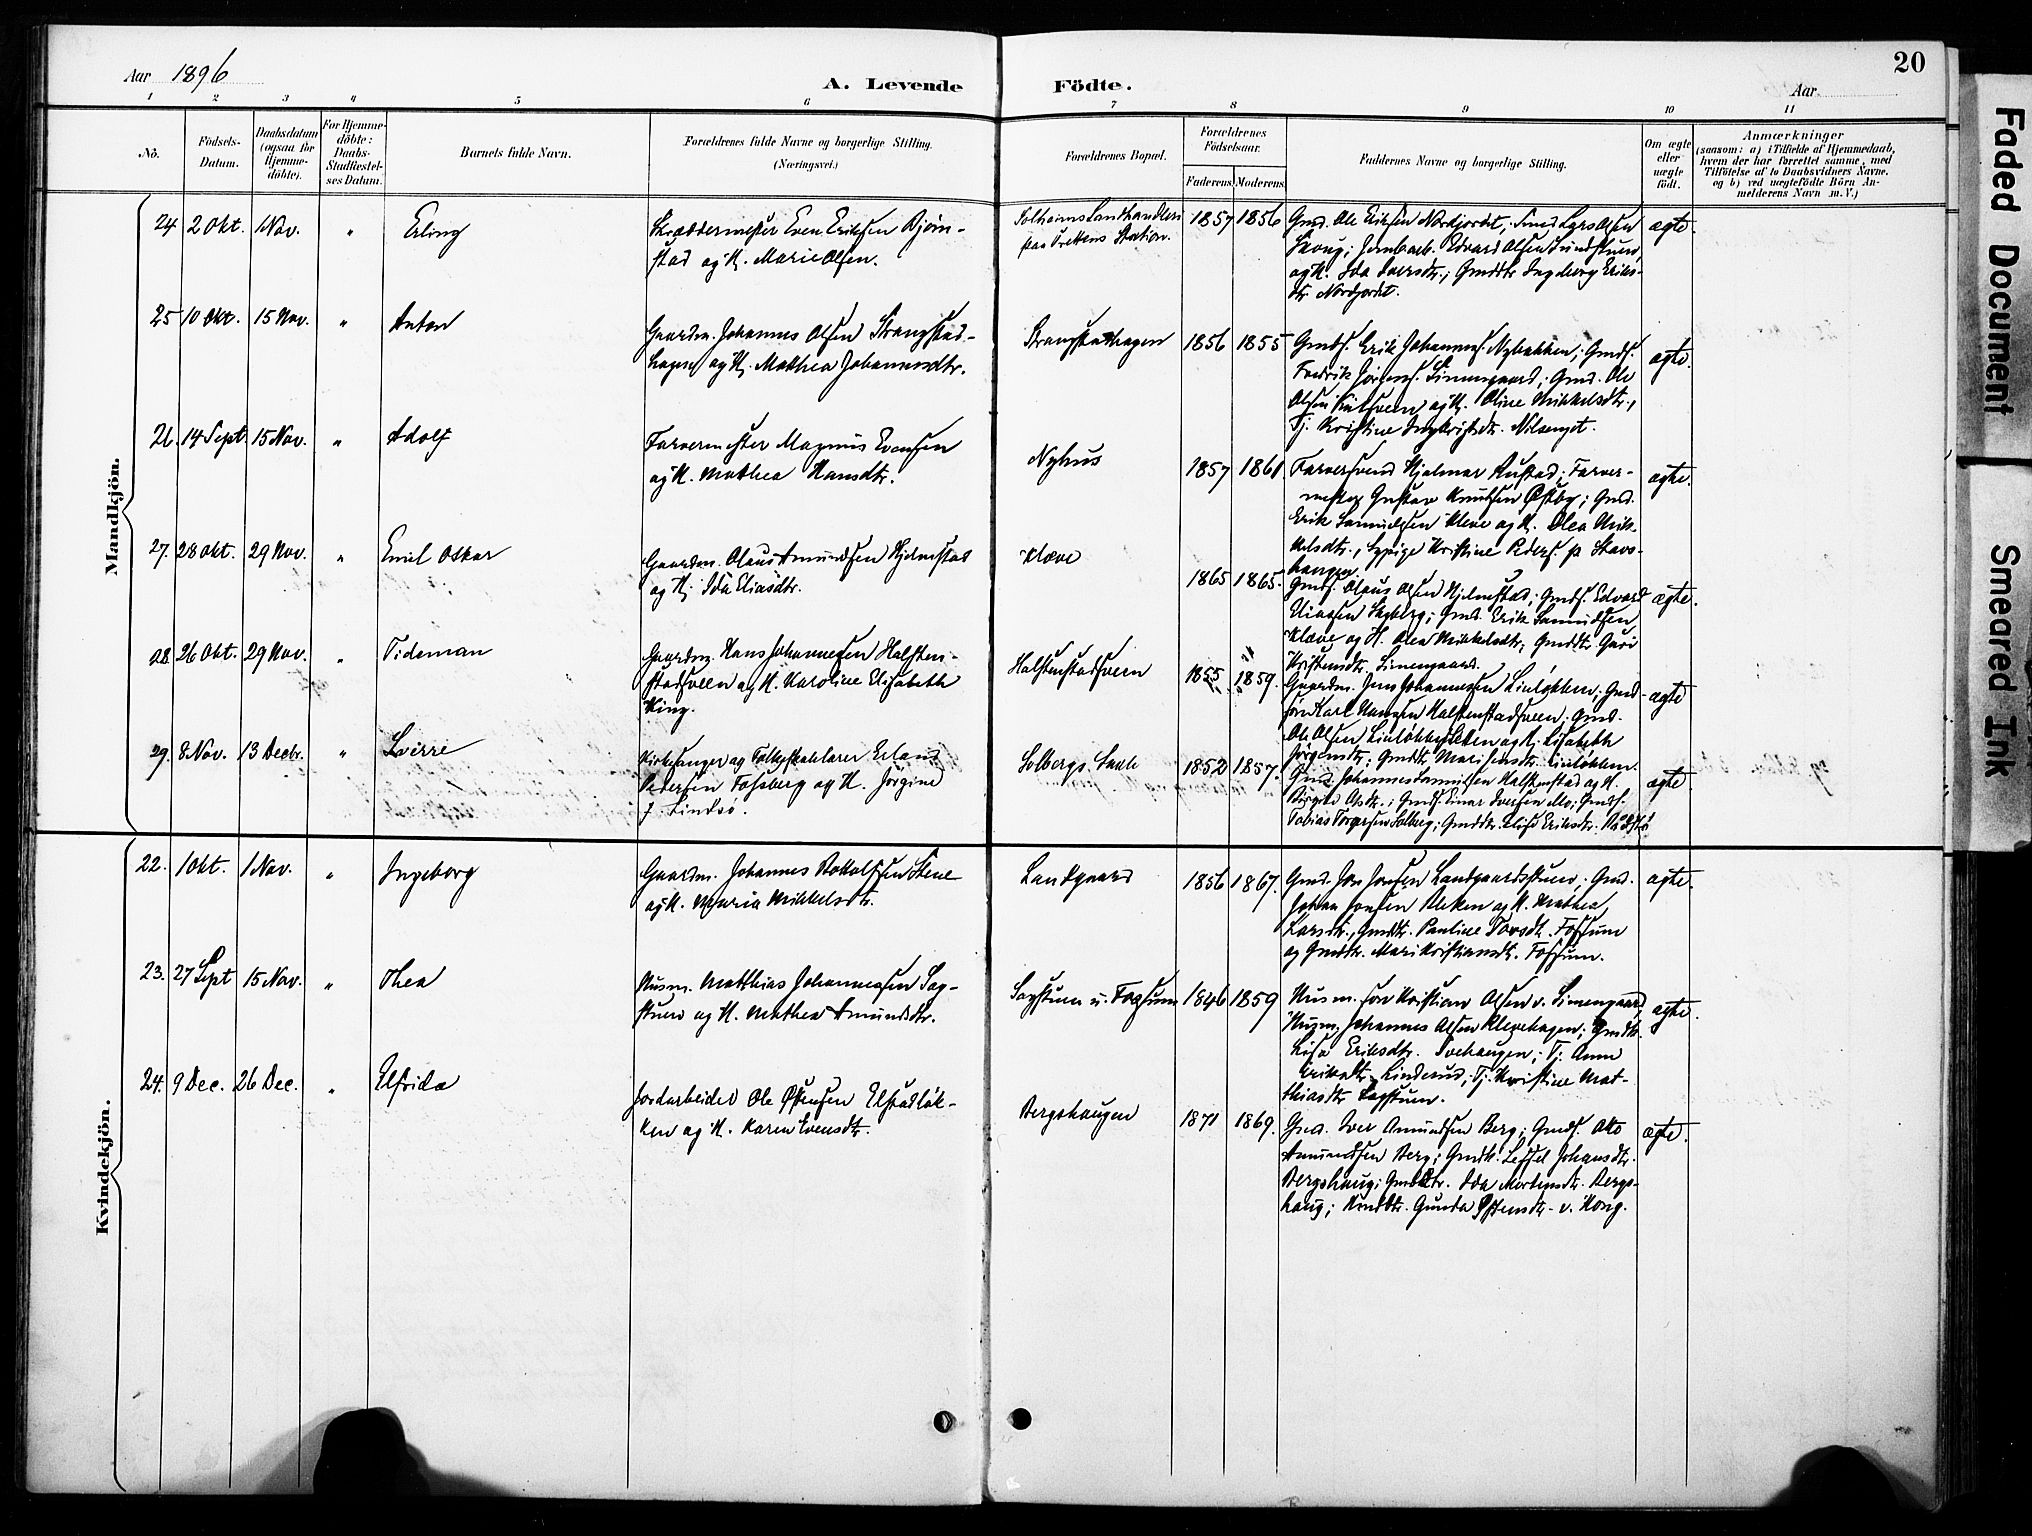 Aar 1896
A. Levende Födte.
Aar
20
1 2 3 4 5 6 7 8 9 10 11
No.
Födsels-
Datum.
Daabsdatum
(ogsaa for
Hjemme-
döbte).
For Hjemme-
döbte:
Daabs-
Stadfæstel-
ses Datum.
Barnets fulde Navn.
Forældrenes fulde Navne og borgerlige Stilling.
(Næringsvei.)
Forældrenes Bopæl.
Forældrenes
Födselsaar.
Faderens Moderens
Faddernes Navne og borgerlige Stilling.
Om ægte
eller
uægte
født.
Anmærkninger
(saasom: a) i Tilfælde af Hjemmedaab,
hvem der har forrettet samme, med
Tilföielse af to Daabsvidners Navne,
og b) ved uægtefödte Börn An-
melderens Navn m. V.)
Mandkjön.
24 2 Okt. 1 Nov. " Erling
Skræddermester Even Eriksen Bjørn-
stad og H. Marie Olsen.
Solheims Landhandleri
paa Tretten Station.
1857 1856
Gmd. Ole Eriksen Nordjordet; Smed Lars Olsen
Skoug; Jernbarb. Edvard Olsen Sundstuen,
og H. Ida Iversdtr.; Gmddtr Ingeborg Eriks-
dtr Nordjordet.
ægte.
25 10 Okt. 15 Nov. " Anton
Gaardm. Johannes Olsen Strangstad-
hagen og H. Mathea Johannesdtr.
Strangstadhagen
1856 1855
Gmds. Erik Johanness. Nybakken; Gmds.
Fredrik Jörgens. Simengaard; Gmd. Ole
Olsen og H. Oline Mikkelsdtr.,
Tj. Kristine
ægte.
26. 14 Sept. 15 Nov. " Adolf
Farvermester Magnus Evensen
og H. Mathea Hansdtr.
Nyhus
1857 1861.
Farversvend Hjalmar Rustad; Farver-
mester Gustav Knutsen Østby; Gmd.
Erik Samuelsen Kleve og H. Olea Mik-
kelsdtr., Sypige Kristine Peders. p Stavs-
haugen.
ægte.
27. 28 Okt. 29 Nov. " Emil Oskar
Gaardm. Olaus Amundsen Hjelmstad
og H. Ida Eliasdtr.
Klæve
1865 1865.
Gmds. Olaus Olsen Hjelmstad; Gmds. Edvard
Eliassen Skyberg; Gmd. Erik Samuelsen
Klæve og H. Olea Mikkelsdtr; Gmddtr Guri
Kristensdtr Simengaard.
ægte.
28. 26 Okt. 29 Nov. " Tideman
Gaardm. Hans Johannesen Halsten-
stadsveen og H. Karoline Elisabeth
King.
Halstenstadsveen
1855 1859.
Gaardm. Jens Johannessen Linløkken; Gmd-
søn Karl Hansen Halstenstadsveen; Gmd.
Ole Olsen og H. Elisabeth
Jörgensdtr; Gmddtr Mari Jensdtr. Linløkken.
ægte
29. 8 Nov. 13 Decbr. " Sverre
Kirkesanger og Folkeskolelærer Erland
Pedersen Fossberg og H. Jørgine
J. Lindsö.
Solbergs Skole
1852 1857.
Gmd. Johannes Samuelsen Halstenstad og H.
Birgit Olsdtr.; Gmds. Einar Iversen Mo; Gmds.
Tobias Torgersen Solberg; Gmddtr. Elise Eriksdtr.
ægte
Kvindekjön.
22. 1 Okt. 1 Nov. " Ingeborg
Gaardm. Johannes Stene
og H. Maria Mikkelsdtr.
Landgaard
1856 1867.
Gmd. Jon Jonsen Landgaardsstuen; Gmd.
Johan Jonsen og H. Mathea
Larsdtr., Gmddtr. Pauline Fossum
og Gmddtr. Mari Kristiansdtr. Fossum.
ægte.
23. 27 Sept 15 Nov. " Thea
Husm. Matthias Johannessen Sag-
stuen og H. Mathea Amundsdtr.
Sagstuen u. Fossum
1846 1859
Husm. søn Kristian Olsen v. Simengaard,
Husm. Johannes Olsen Klevehagen; Gmdtr.
Lisa Eriksdtr. Tj. Anne
Eriksdtr Linderud; Tj. Kristine Mat-
thiasdtr Sagstuen.
ægte.
24. 9 Dec. 26 Dec. " Elfrida
Jordarbeider Ole Østensen Elstadløk-
ken og H. Karen Evensdtr.
Bergshaugen
1871 1869.
Gmd. Iver Amundsen Berg; Gmds. Otto
Amundsen Berg; Gmdtr. Johansdtr.
Bergshaug; Gmddtr. Ida Mortensdtr. Bergs-
haug; Gmddtr. Gunda Østensdtr. v.
ægte.
Faded Document
Smeared Ink